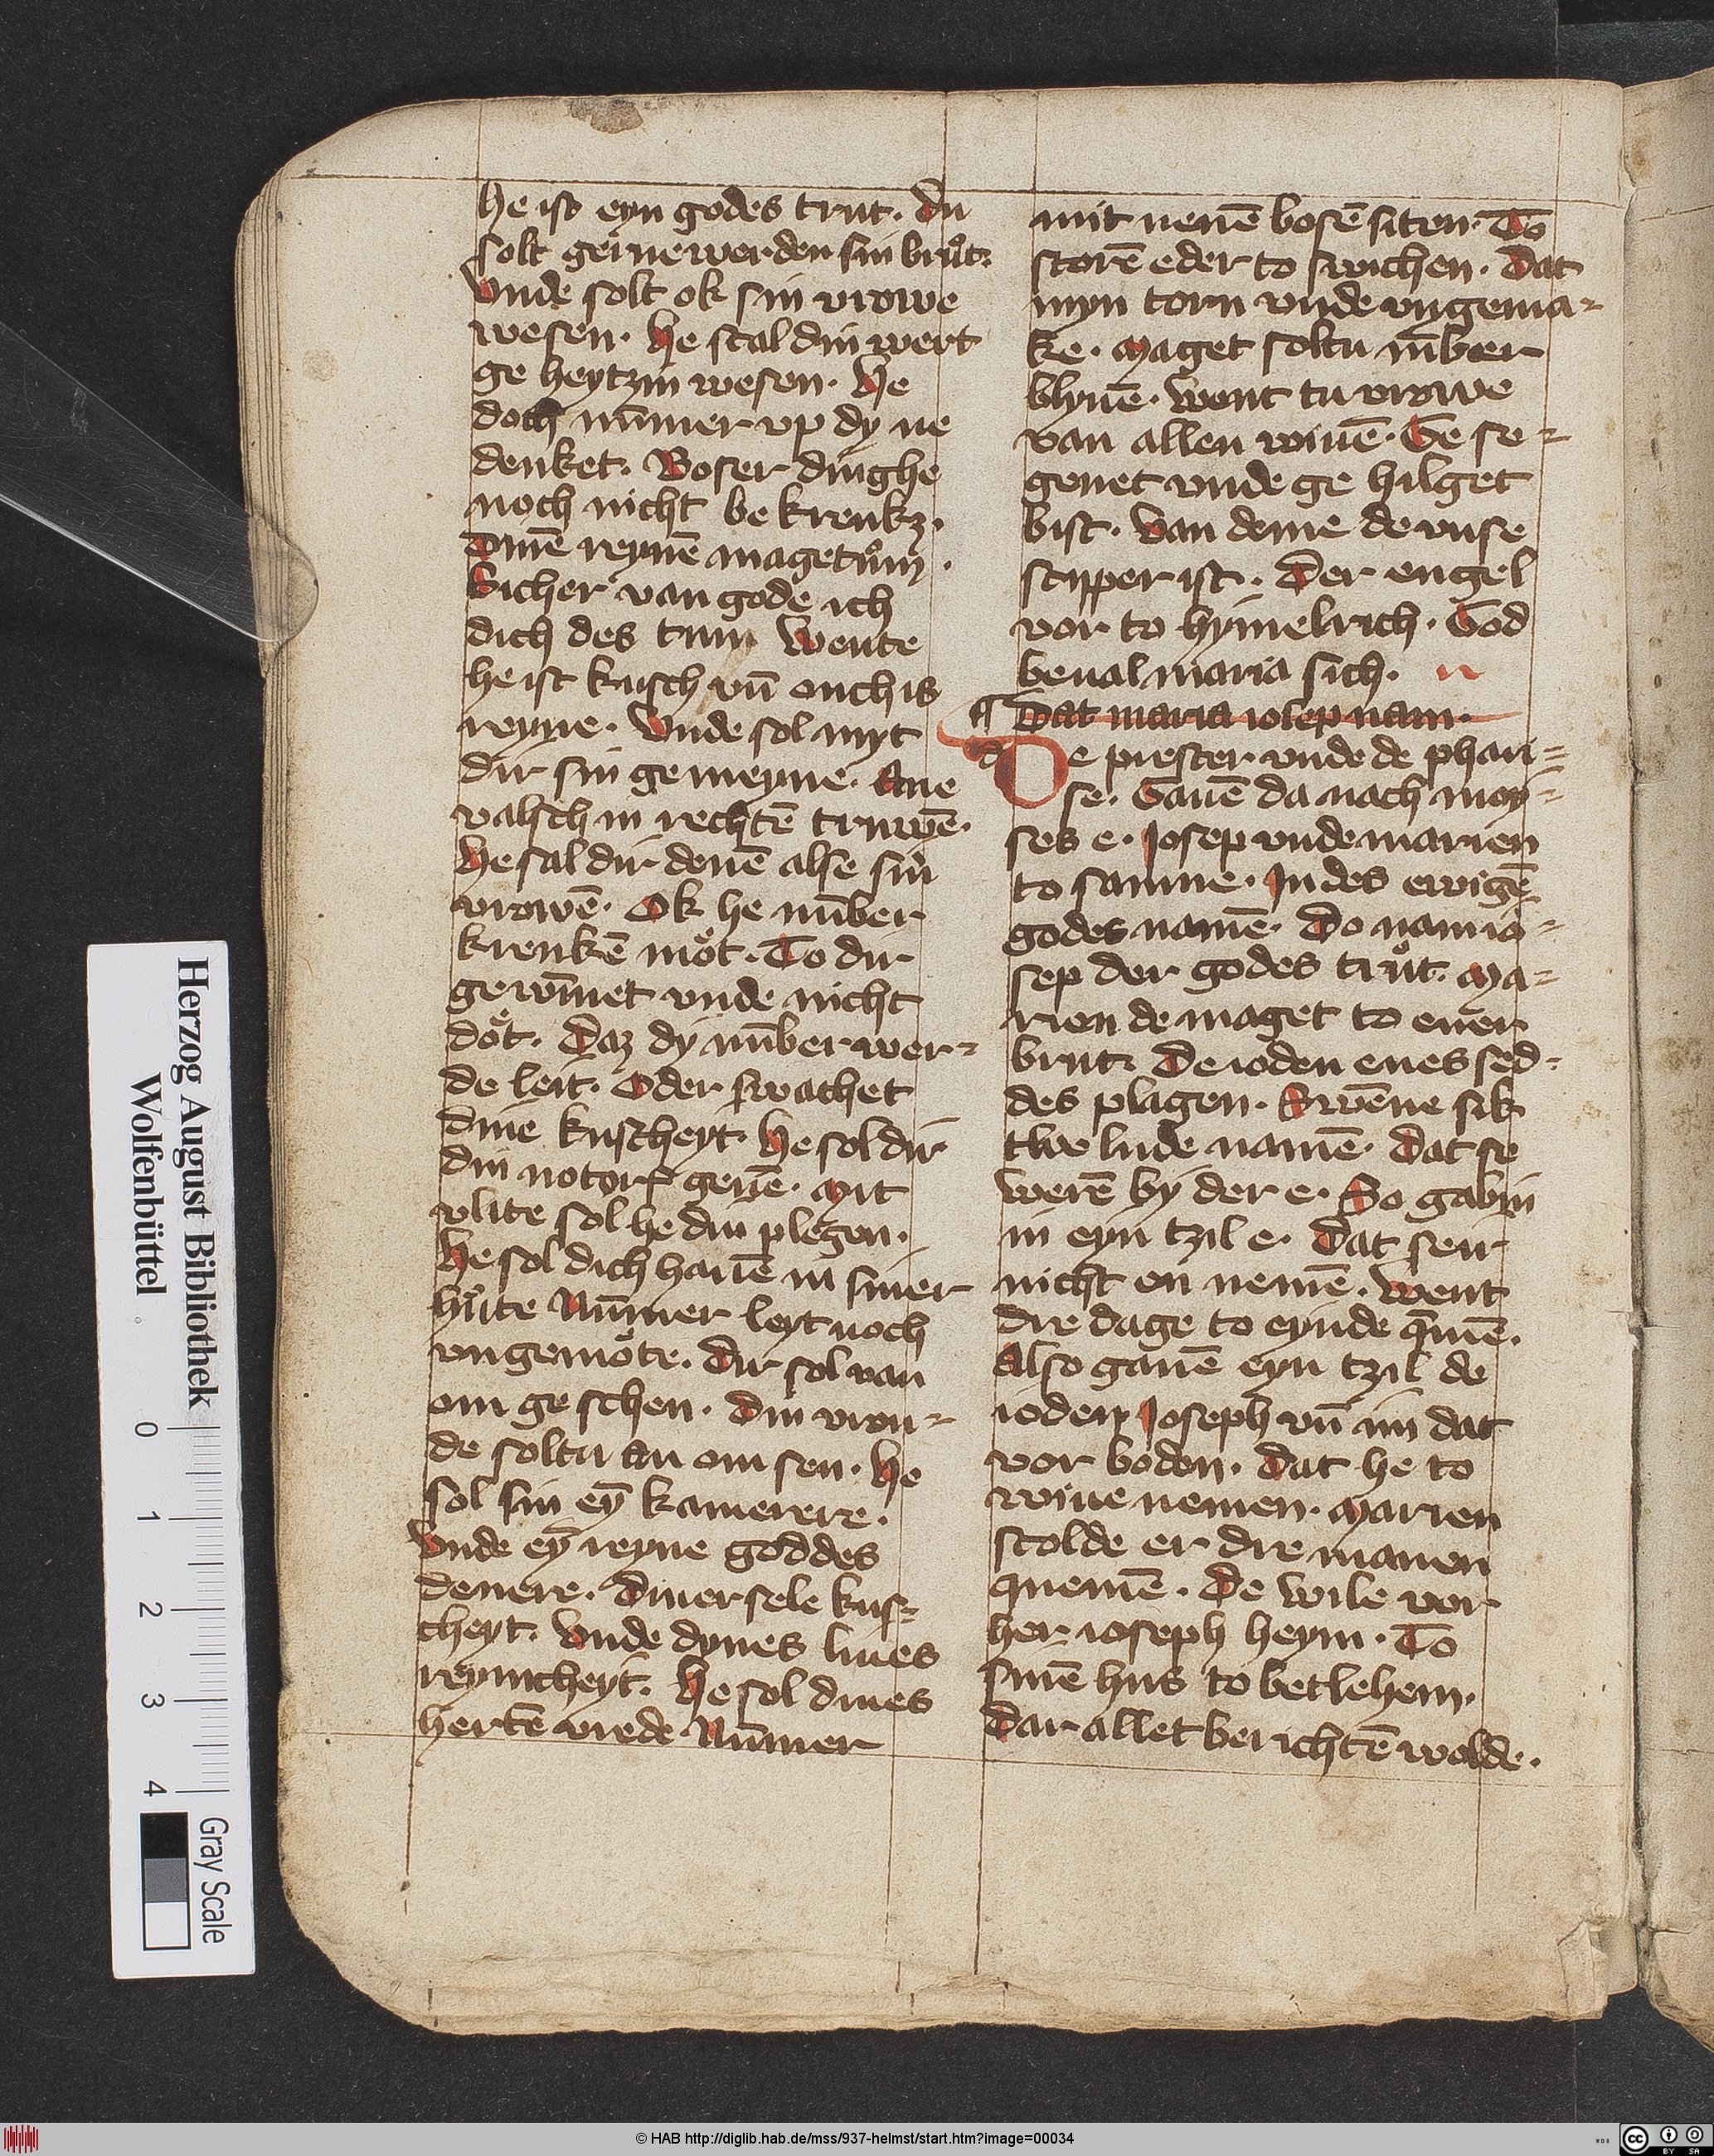 He ist eyn godes trut. Du
solt geͤrne werden sin bruͦt.
Vnde solt ok sin vrowe
wesen. He scal din wert
ge heytzin wesen. He
doch nūmer vp dy ne
denket. Boser dinghe
noch nicht be krenkz.
Dinē reynē magetuͦm.
Sicher van gode ich
dich des tuin Wente
he ist kusch vn̄ ouch is
reyne. Vnde sol myt
dir sin ge meyne. Ane
valsch in rechtē truwē.
He sal dir denē alse sin̄
vrowē. Ok he nūmber
krenkē moͤt. To dir
gewīnet vnde nicht
doͤt. Daz dy nūmber wer-
de leit. Oder swachet
dine kuscheyt. He sol dir
din notorf geuē. Mit
vlite sol he din plegen.
He sol dich hauē in siner
huͦte Nūmer leyt noch
vngemoͤte. Dir sol van
om ge schen. Din vron-
de soltu an om sen. He
sol sin eyn̄ kamerere.
Vnde eyn̄ reyne goddes
denere. Diner sele kus-
cheyt. Vnde dynes liues
reynicheyt. He sol dines
hertē vrede. Nūmer
mit nenē bosē siten. To
storē eder to swichen. Dat
myn torn vnde vngema-
ke. Maget soltu nūmber
blyuē. Went tu vrowe
van allen wiuē. Ge se-
genet vnde ge hilget
bist. Van deme de vnse
scipper ist. Der engel
vor to hymelrich. God
beual maria sich.
Dat maria iosep nam.
d
De piester vnde de phari-
se. Gauē da nach moy-
ses e. Josep vnde marien
to samne. In des ewigē
godes namē. Do nam io-
sep der godes truͦt. Ma-
rien de maget to ener
brut. De ioden enes sed-
des plagen. Swēne sik
twe lude namē. Dat se
werē by der e. So gabin
in eyn tzil e. Dat seir
nicht en nemē. Went
dre dage to eynde q̄mē.
Also gauē eyn tzil de
ioden Joseph vn̄ im dat
vor boden. Dat he to
wiue nemen. Marien
scolde er dre manen
quemē. De wile vor
her ioseph heym. To
sinē hus to betlehem.
Dar allet berichtē wolde.
Herzog August Bibliothek
Wolfenbüttel
0 1 2 3 4
Gray Scale
© HAB http://diglib.hab.de/mss/937-helmst/start.htm?image=00034
cc BY SA